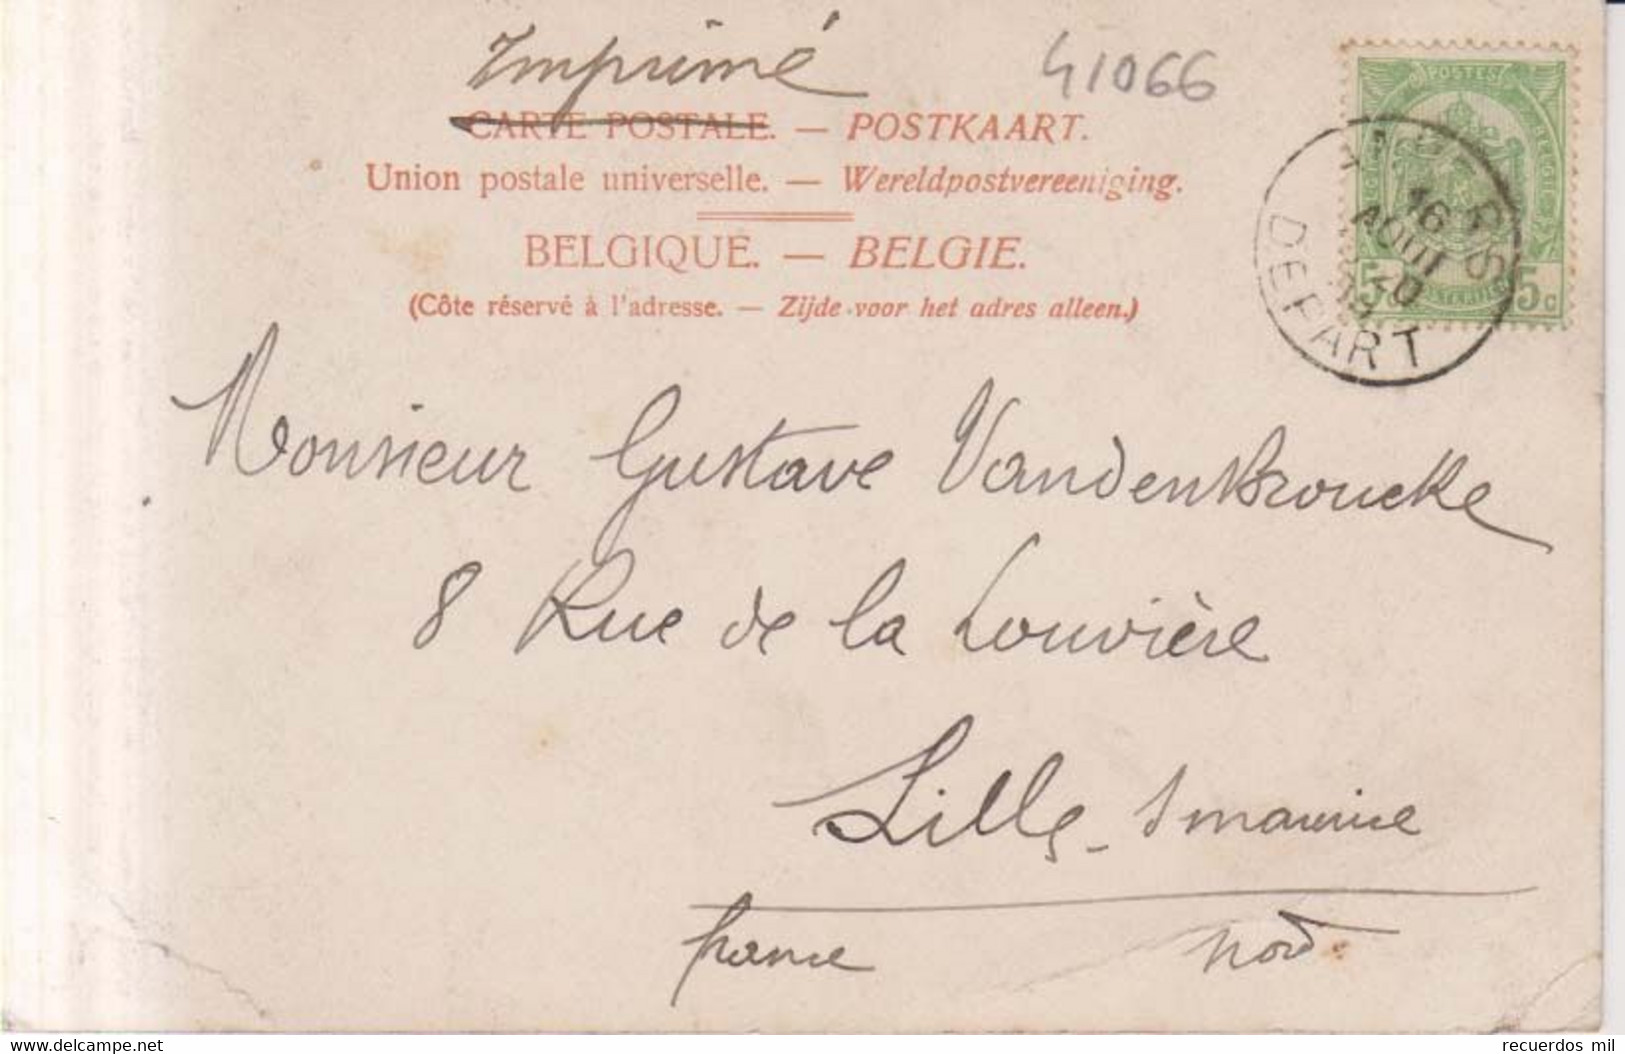 Imprimé
41066
CARTE POSTALE. — POSTKAART.
Union postale universelle. — Wereldpostvereeniging.
BELGIQUE. — BELGIE.
(Côte réservé à l'adresse. — Zijde voor het adres alleen.)
POSTES
BELGIE
5 5c
16
AOUT
DEPART
Monsieur Gustave VandenBroucke
8 Rue de la Louvière
Lille - St maurice
france nord
delcampe.net
recuerdos mil